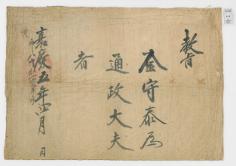 教旨
金守泰爲
通政大夫
者
嘉慶五年四月 日